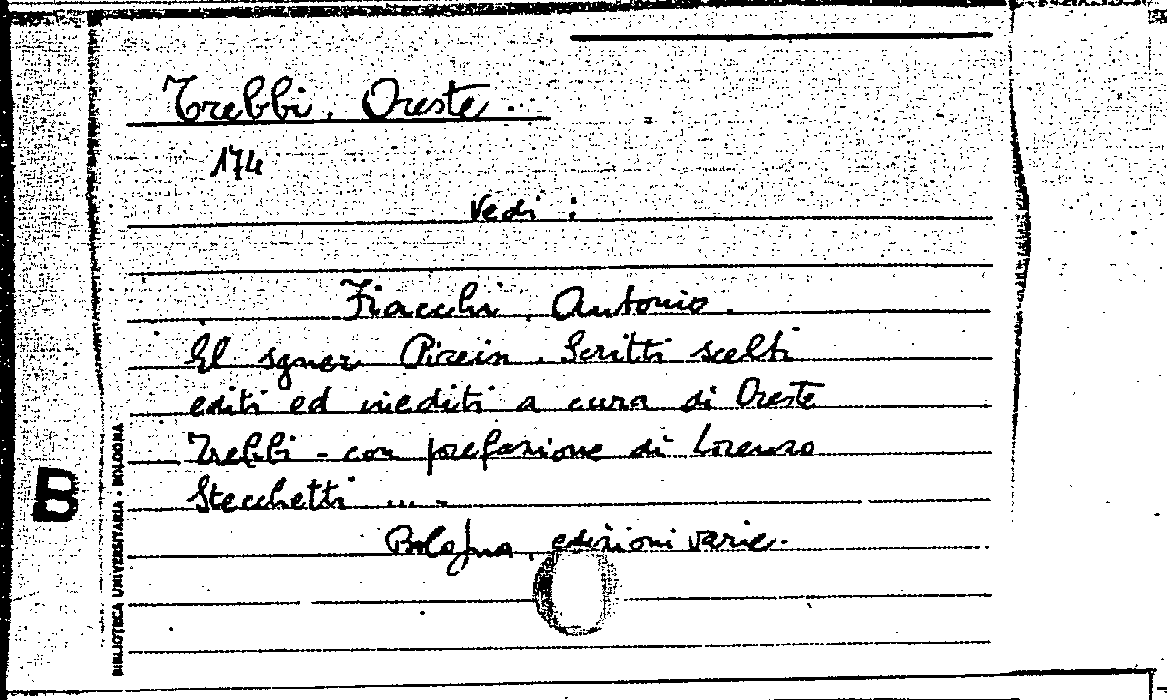 Trebbi, Oreste
174
Vedi :
Fiacchi, Antonio.
El sgner Pirein. Scritti scelti
editi ed inediti a cura di Oreste
Trebbi - con prefazione di Lorenzo
Stecchetti ... -
Bologna, edizioni varie.
B
BIBLIOTECA UNIVERSITARIA - BOLOGNA